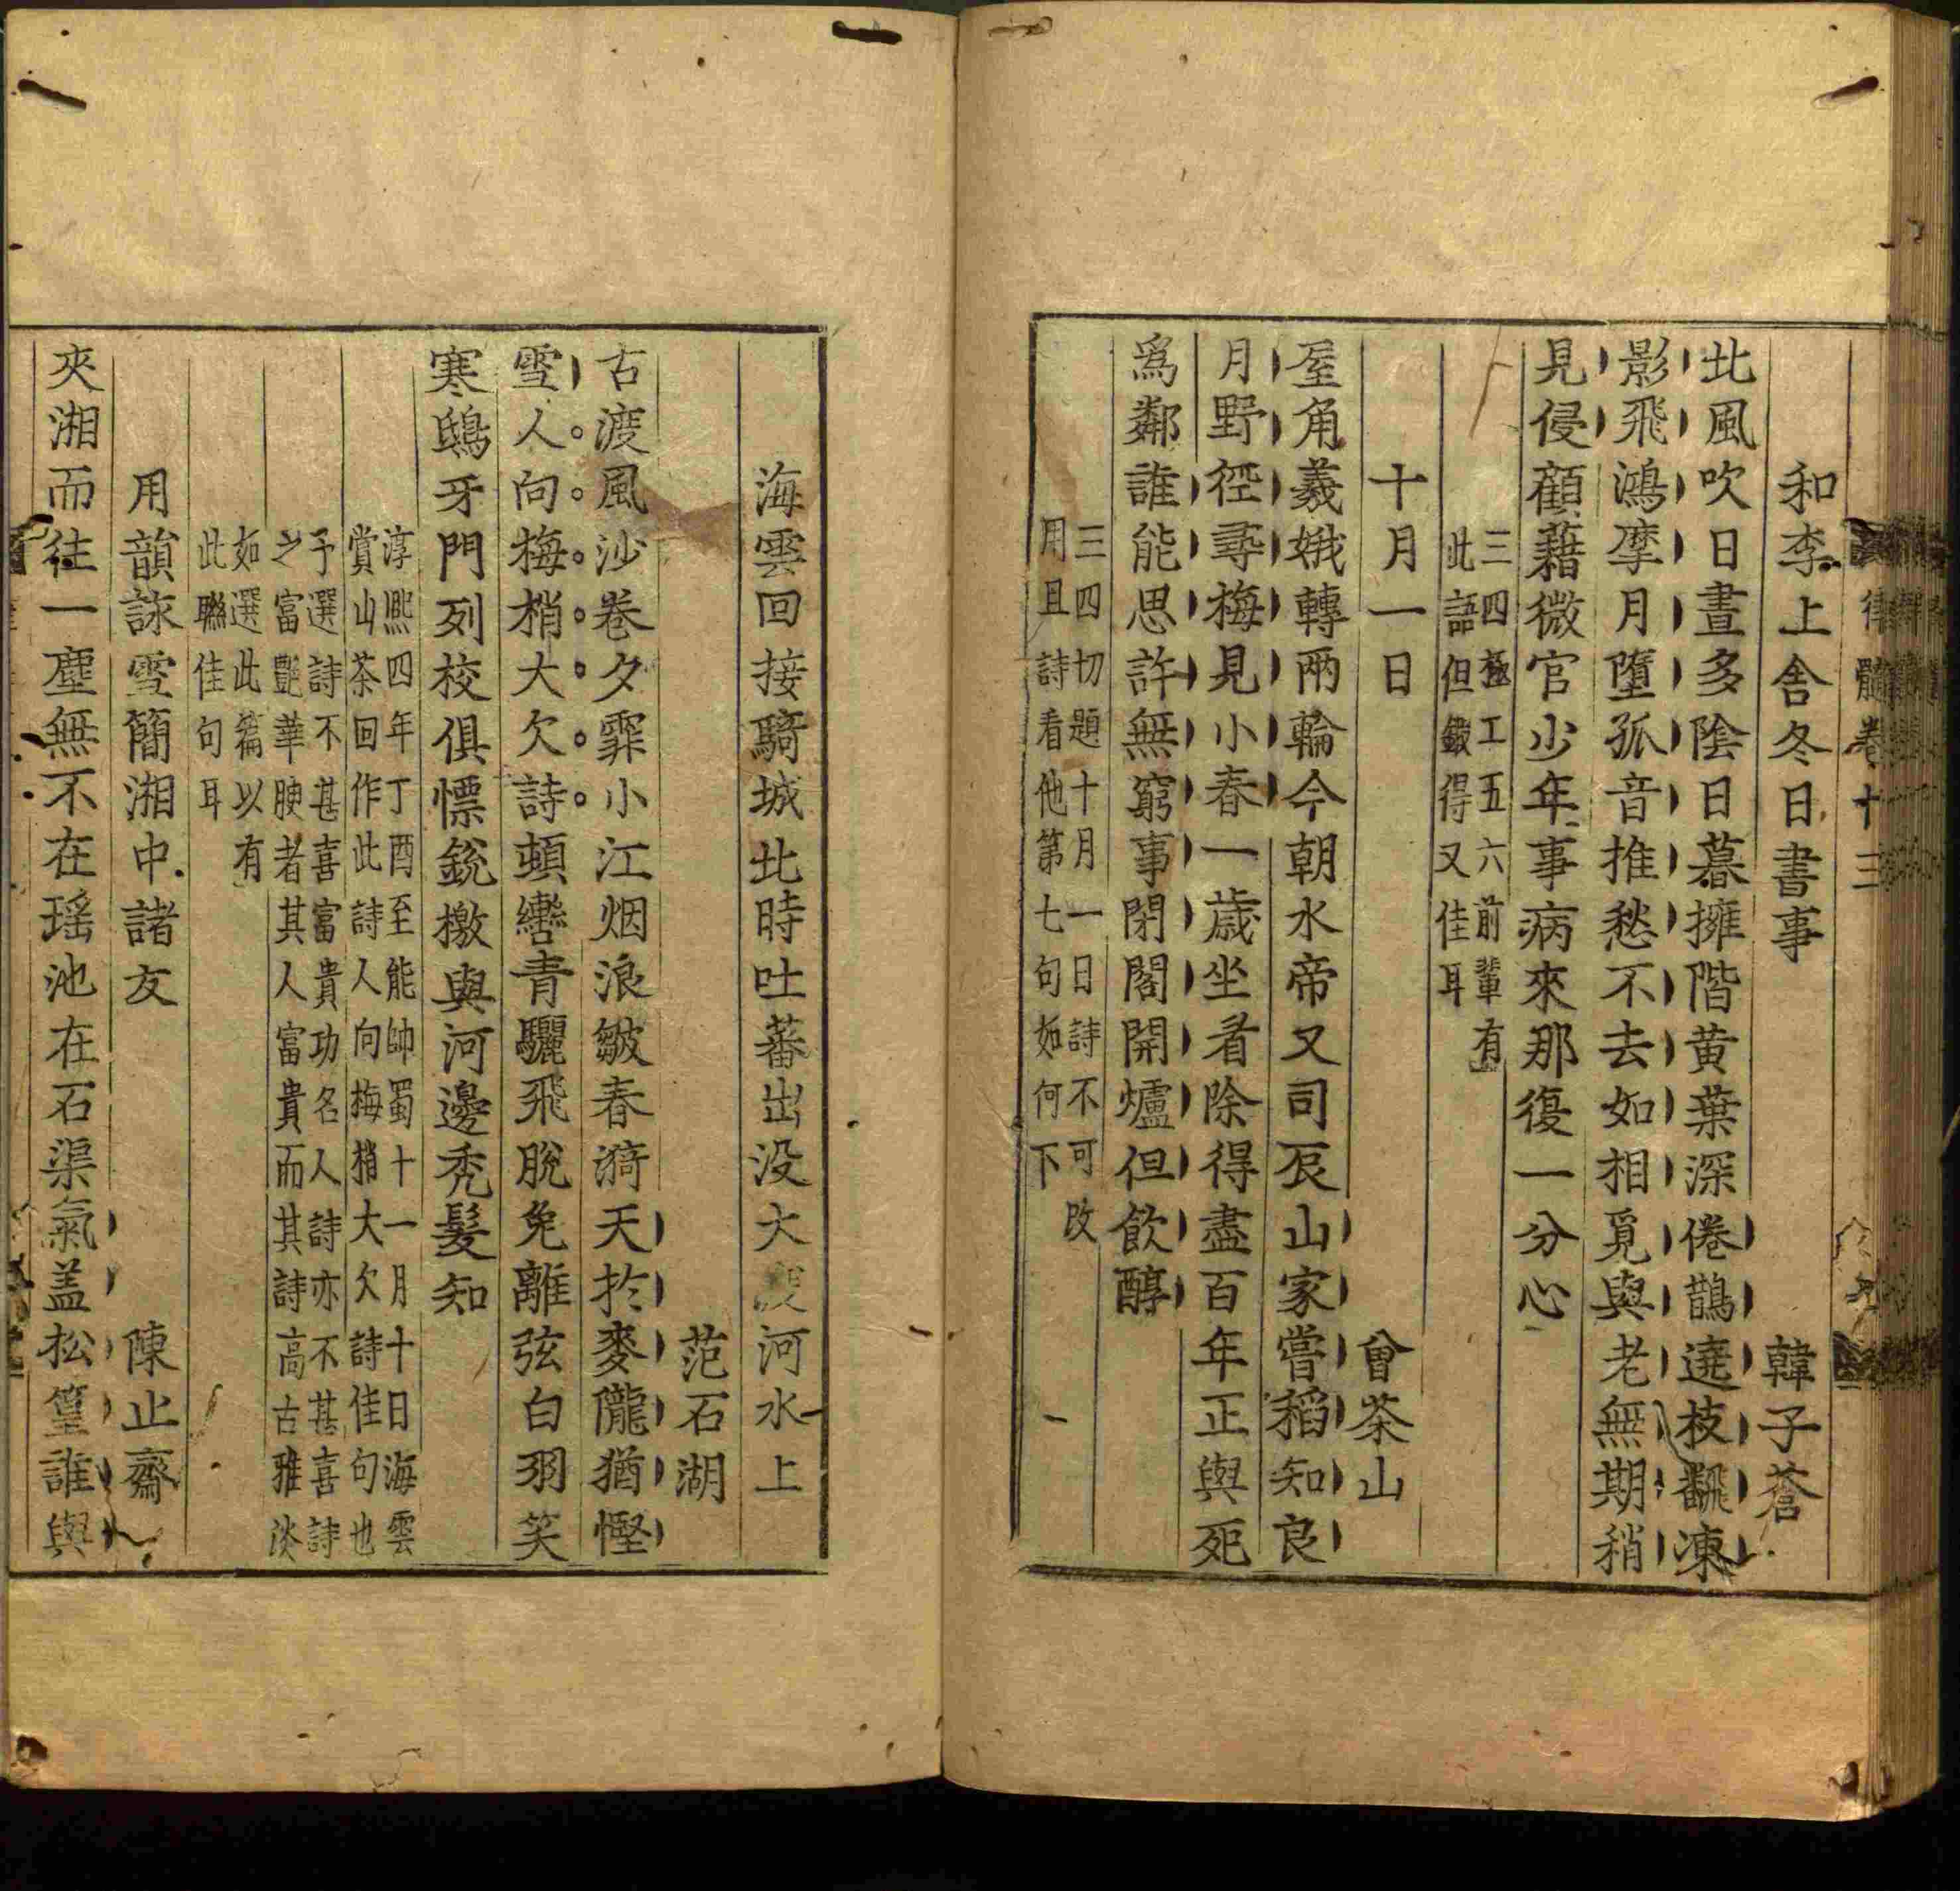 律髓卷十三
和李上舍冬日書事
韓子蒼
北風吹日晝多陰日暮擁階黄葉深倦鵲遶枝飜凍
影飛鴻摩月墮孤音推愁不去如相覓與老無期稍
見侵顧藉微官少年事病來那復一分心
三四極工五六前輩有
此語但鍛得又佳耳
十月一日
曾茶山
屋角羲娥轉兩輪今朝水帝又司辰山家嘗稻知良
月野徑尋梅見小春一歲坐看除得盡百年正與死
爲鄰誰能思許無窮事閉閣開爐但飲醇
三四切題十月一日詩不可改
用且詩看他第七句如何下
海雲回接騎城北時吐蕃出没大渡河水上
范石湖
古渡風沙卷夕霏小江烟浪皺春漪天於麥隴猶慳
雪人向梅梢大欠詩頓轡青驪飛脫免離弦白羽笑
寒鴟牙門列校俱慓銳檄與河邊禿髮知
淳熙四年丁酉至能帥蜀十一月十日海雲
賞山茶回作此詩人向梅梢大欠詩佳句也
予選詩不甚喜富貴功名人詩亦不甚喜詩
之富艷華腴者其人富貴而其詩高古雅淡
如選此篇以有
此聯佳句耳
用韻詠雪簡湘中諸友
陳止齋
夾湘而往一塵無不在瑶池在石渠氣盖松篁誰與